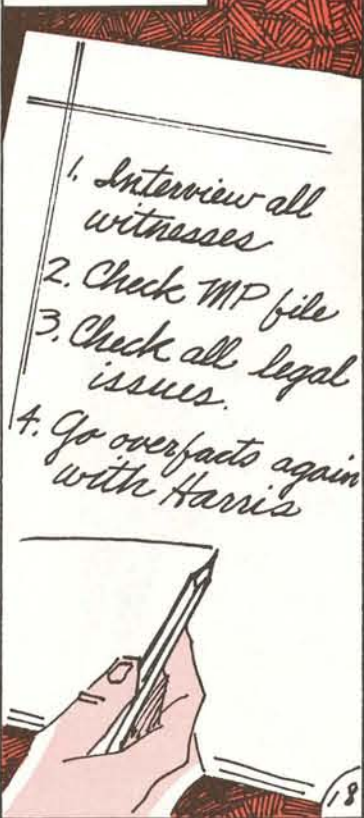 1. Interview all
witnesses
2. Check MP file
3. Check all legal
issues.
4. Go over facts again
with Harris
18